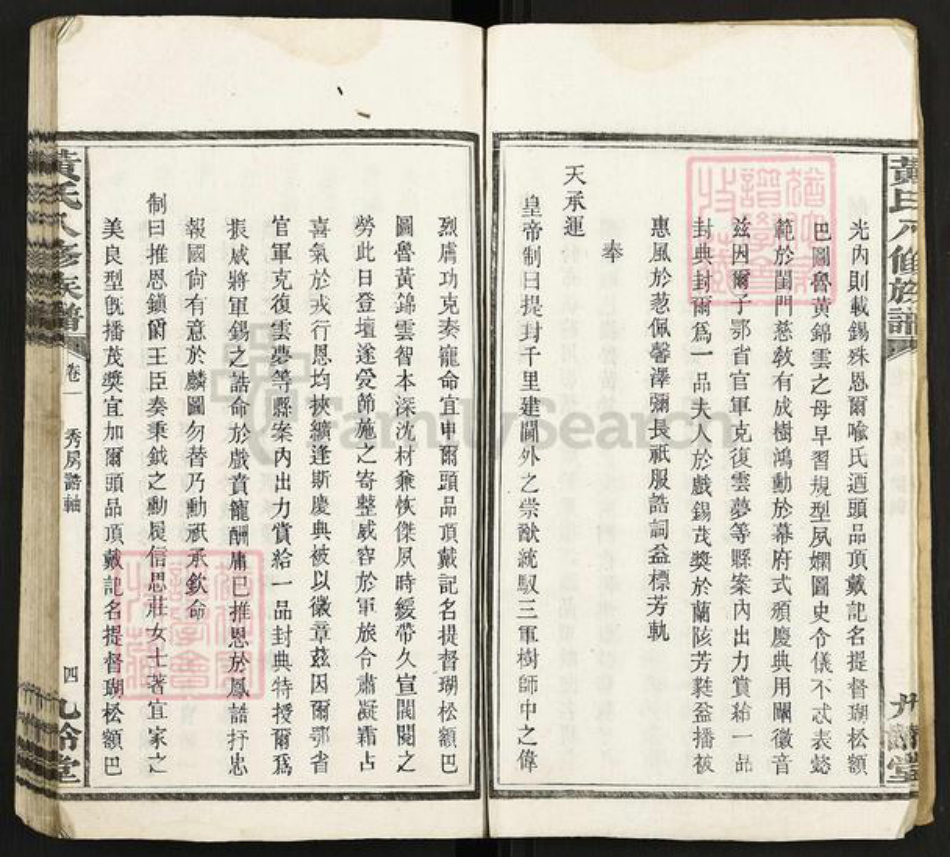 光內則載錫殊恩爾喻氏迺頭品頂戴記名提督瑚松額
巴圖魯黃錦雲之母早習規型夙嫻圖史令儀不忒表懿
範於閨門慈敎有成樹鴻勳於幕府式頒慶典用闡徽音
茲因爾子鄂省官軍克復雲夢等縣案內出力賞給一品
封典封爾爲一品夫人於戲錫茂奬於蘭陔芳蕤益播被
惠風於蔥佩馨澤彌長祇服誥詞益標芳軌
奉
天承運
皇帝制曰提封千里建閫外之崇猷統馭三軍樹師中之偉
烈膚功克奏寵命宜申爾頭品頂戴記名提督瑚松額巴
圖魯黃錦雲智本深沈材兼恢傑夙時緩帶久宣閥閱之
勞此日登壇遂受節施之寄整威容於軍旅令肅凝霜占
喜氣於戎行恩均挾纊逢斯慶典被以徽章茲因爾鄂省
官軍克復雲夢等縣案內出力賞給一品封典特授爾爲
振威將軍錫之誥命於戲賁寵酬庸已推恩於鳳誥抒忠
報國尙有意於麟圖勿替乃勳祇承欽命
制曰推恩鎭閫王臣奏秉鉞之勳履信思莊女士著宜家之
美良型旣播茂奬宜加爾頭品頂戴記名提督瑚松額巴
黃氏八修族譜
卷一
秀房誥軸
四
九衿堂
FamilySearch